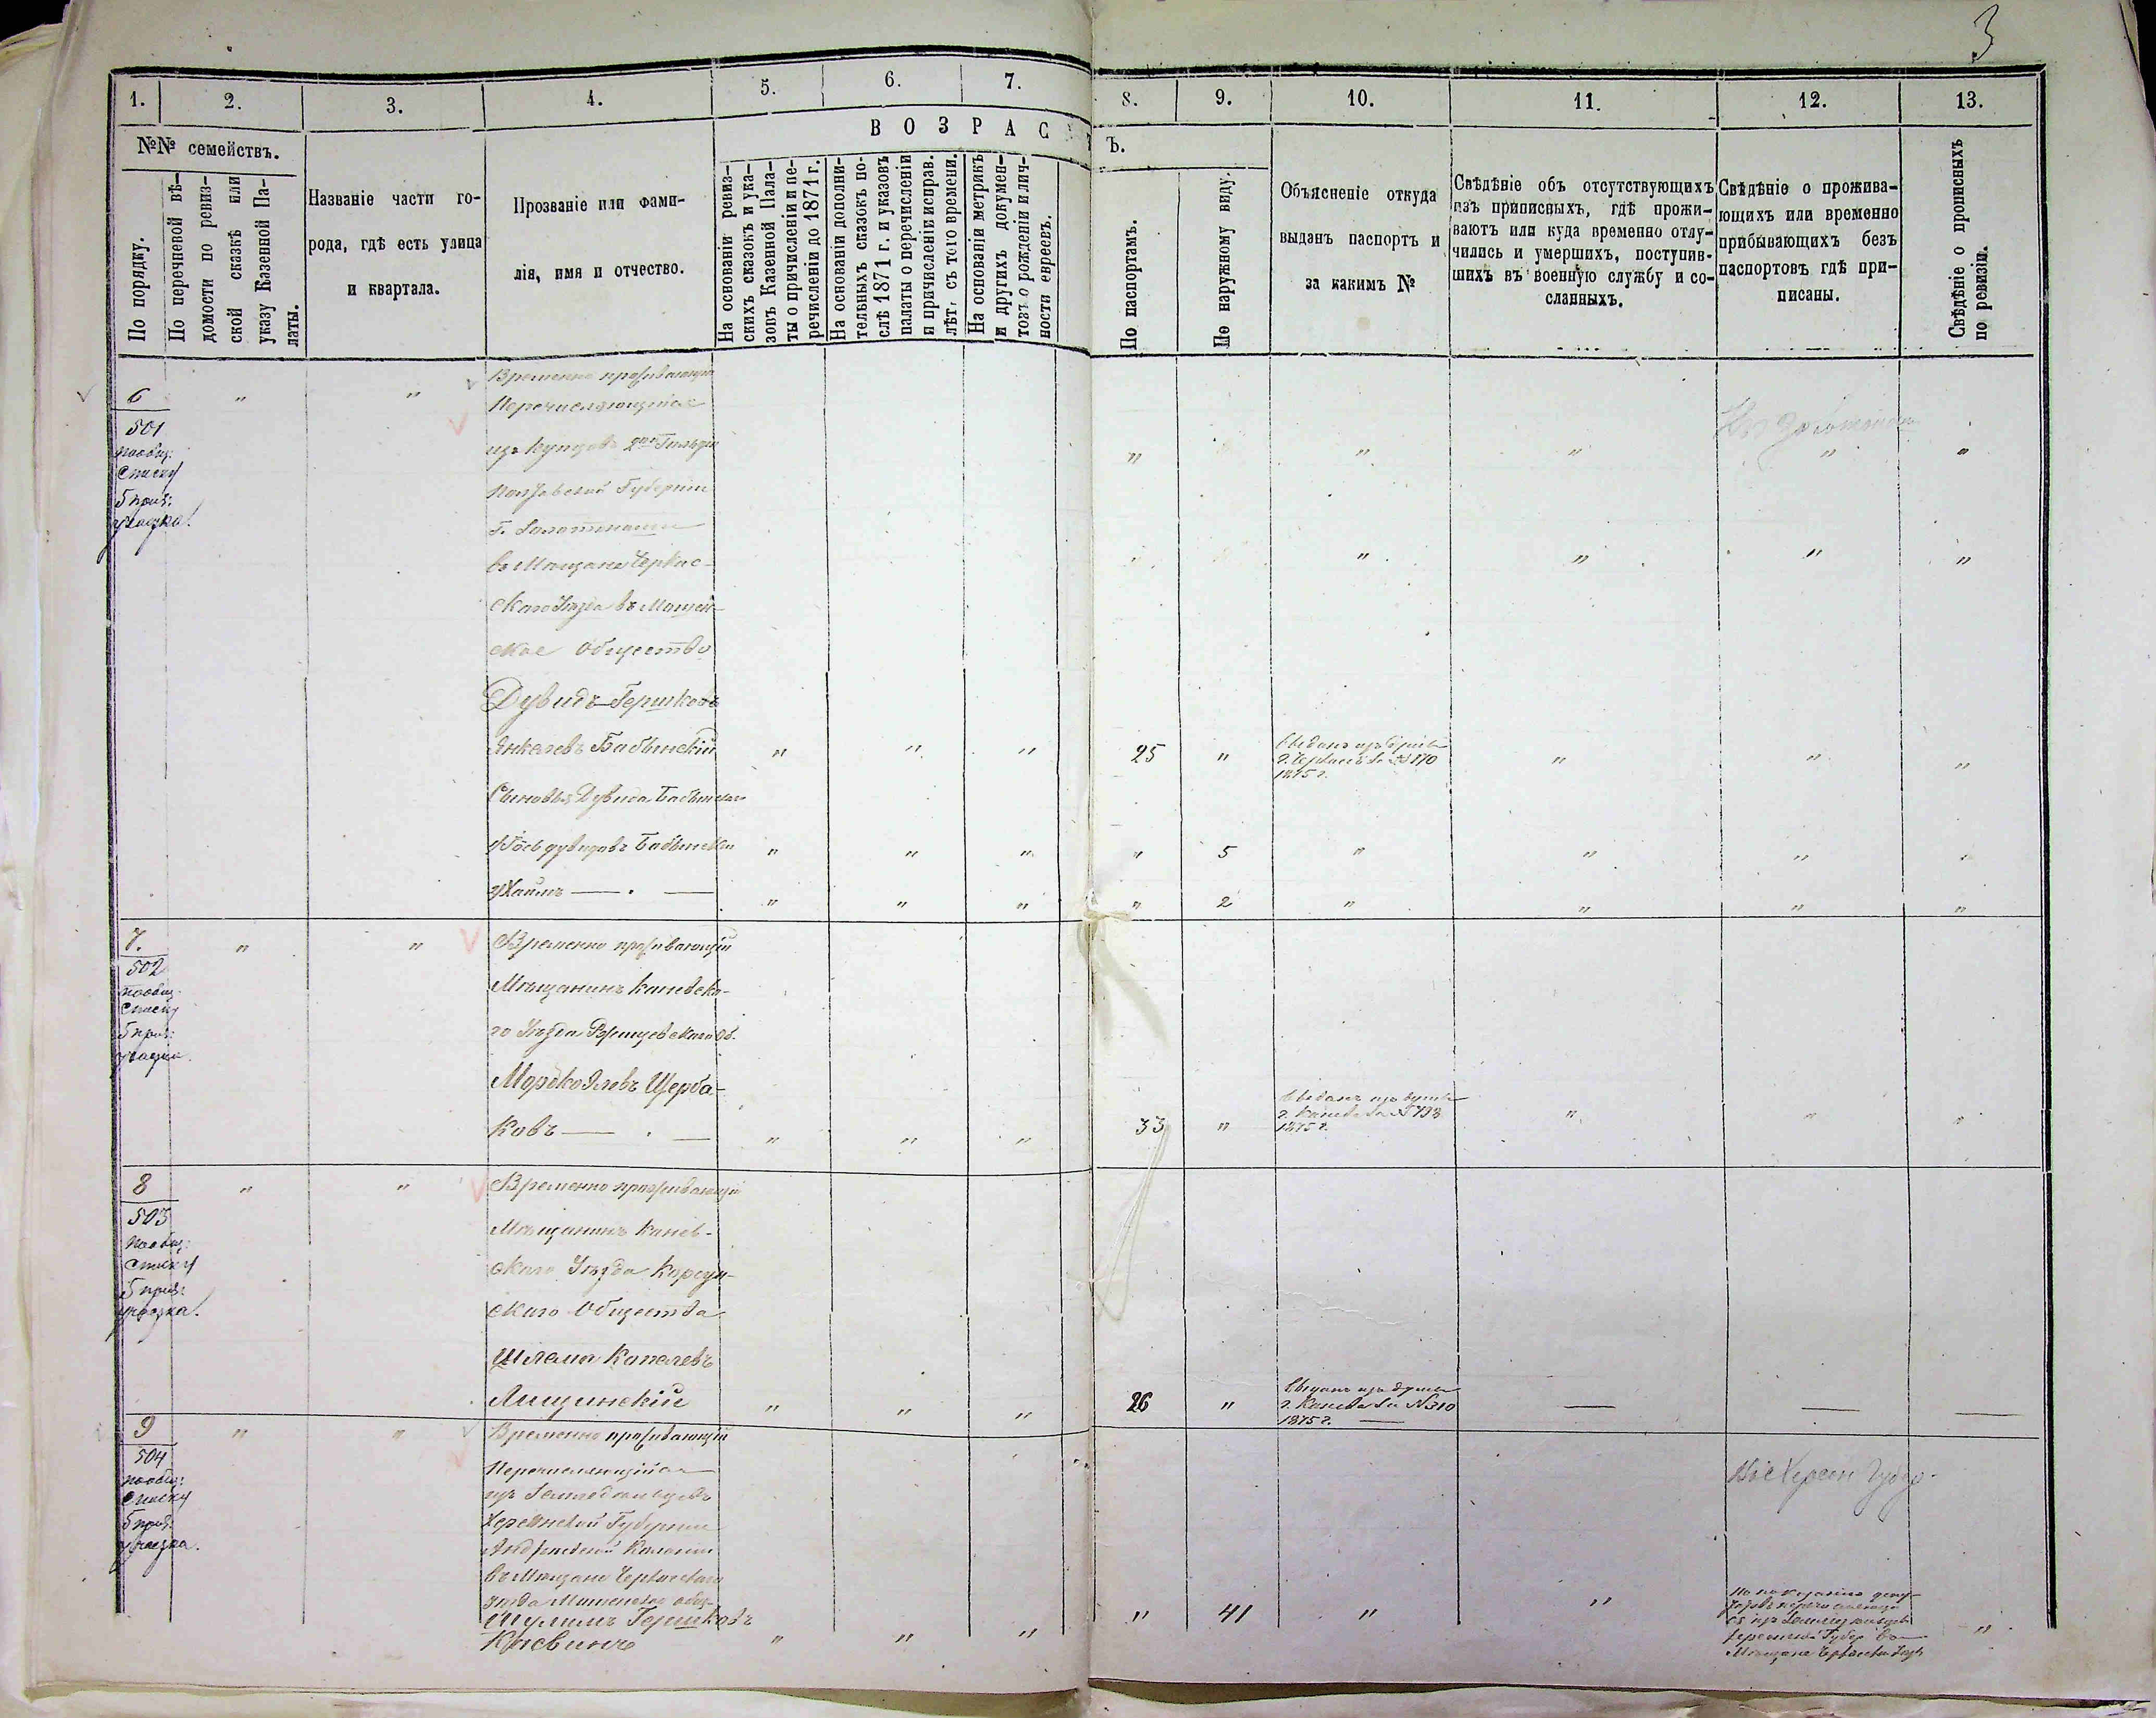 3
1.
2.
3.
4.
5.
6.
7.
8.
9.
10.
11.
12.
13.
№№ семействъ.
По порядку.
По перечневой вѣ-
домости по ревиз-
ской сказкѣ или
указу Казенной Па-
латы.
Названіе части го-
рода, гдѣ есть улица
и квартала.
Прозваніе или фами-
лія, имя и отчество.
ВОЗРАСТЪ.
На основаніи ревиз-
скихъ сказокъ и ука-
зовъ Казенной Пала-
ты о причисленіи и пе-
речисленіи до 1871 г.
На основаніи дополни-
тельныхъ сказокъ по-
слѣ 1871 г. и указовъ
палаты о перечисленіи
и причисленіе исправ.
лѣт, съ того времени.
На основаніи метрикъ
и другихъ докумен-
товъ о рожденіи и лич-
ности евреевъ.
По паспортамъ.
По наружному виду.
Объясненіе откуда
выданъ паспортъ и
за какимъ №
Свѣдѣніе объ отсутствующихъ
изъ приписныхъ, гдѣ прожи-
ваютъ или куда временно отлу-
чились и умершихъ, поступив-
шихъ въ военную службу и со-
сланныхъ.
Свѣдѣніе о прожива-
ющихъ или временно
прибывающихъ безъ
паспортовъ гдѣ при-
писаны.
Свѣдѣніе о прописныхъ
по ревизіи.
6
501
по общ:
списку
5 приз:
участка.
Временно проживающій
Перечисляющійся
изъ купцовъ 2ой Гильдіи
Полтавской Губерніи
Г. Золотоноши
въ Мѣщане Черкас-
скаго Уѣзда въ Мошен-
ское Общество
Дувидъ-Гершковъ
Янкелевъ Бабѣнскій
25
Выданъ изъ Думы
г. Черкасъ за № 170
1875 г.
Сыновья Дувида Бабѣнскаго
1) Іось Дувидовъ Бабѣнскій
5
2) Хаимъ — . —
2
7.
502
по общ.
списку
5 приз:
участка.
Временно проживающій
Мѣщанинъ Каневска-
го Уѣзда Ржищевскаго Об.
Мордко Элевъ Щерба-
ковъ — . —
33
Выданъ изъ думы
г. Канева за № 793
1875 г.
8
503
по общ:
списку
5 приз:
участка.
Временно проживающій
Мѣщанинъ Канев-
скаго Уѣзда Корсун-
скаго Общества
Шлема Копелевъ
Лищинскій
26
Выданъ изъ думы
г. Канева за № 310
1875 г. —
9
504
по общ:
списку
5 приз:
участка.
Временно проживающій
Перечисляющійся
изъ Земледѣльцевъ
Херсонской Губерніи
Колоніи
въ Мѣщане Черкасскаго
уѣзда Мошенское общ-
Шулимъ Гершковъ
Кіевинъ
41